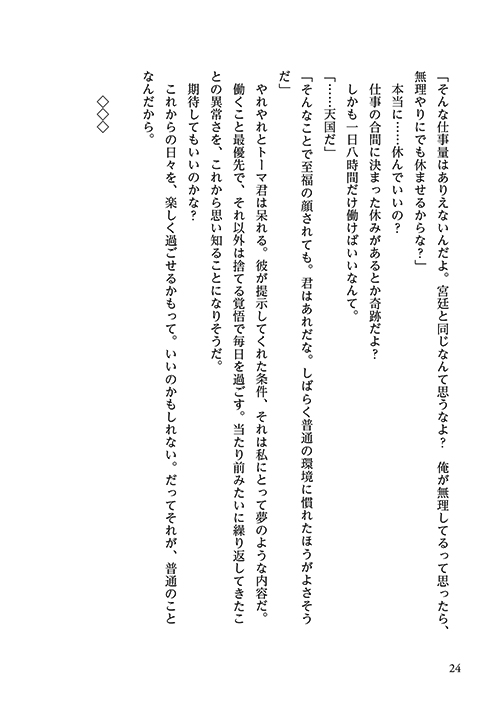 「そんな仕事量はありえないんだよ。宮廷と同じなんて思うなよ？　俺が無理してるって思ったら、
無理やりにでも休ませるからな？」
本当に……休んでいいの？
仕事の合間に決まった休みがあるとか奇跡だよ？
しかも一日八時間だけ働けばいいなんて。
「……天国だ」
「そんなことで至福の顔されても。君はあれだな。しばらく普通の環境に慣れたほうがよさそう
だ」
やれやれとトーマ君は呆れる。彼が提示してくれた条件、それは私にとって夢のような内容だ。
働くこと最優先で、それ以外は捨てる覚悟で毎日を過ごす。当たり前みたいに繰り返してきたこ
との異常さを、これから思い知ることになりそうだ。
期待してもいいのかな？
これからの日々を、楽しく過ごせるかもって。いいのかもしれない。だってそれが、普通のこと
なんだから。
◇◇◇
24